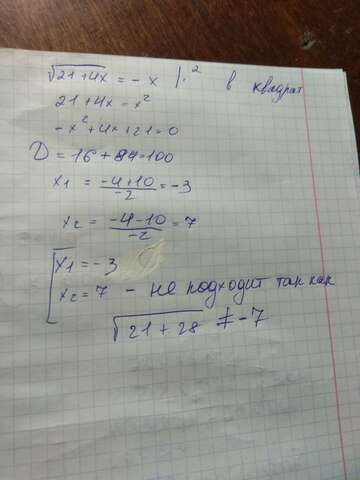 √21+4x = -x |·² в квадрат
21+4x = x²
-x²+4x+21=0
D=16+84=100
x1 = -4+10/-2 = -3
x2 = -4-10/-2 = 7
[x1 = -3
x2 = 7 - не подходит так как
√21+28 ≠ -7